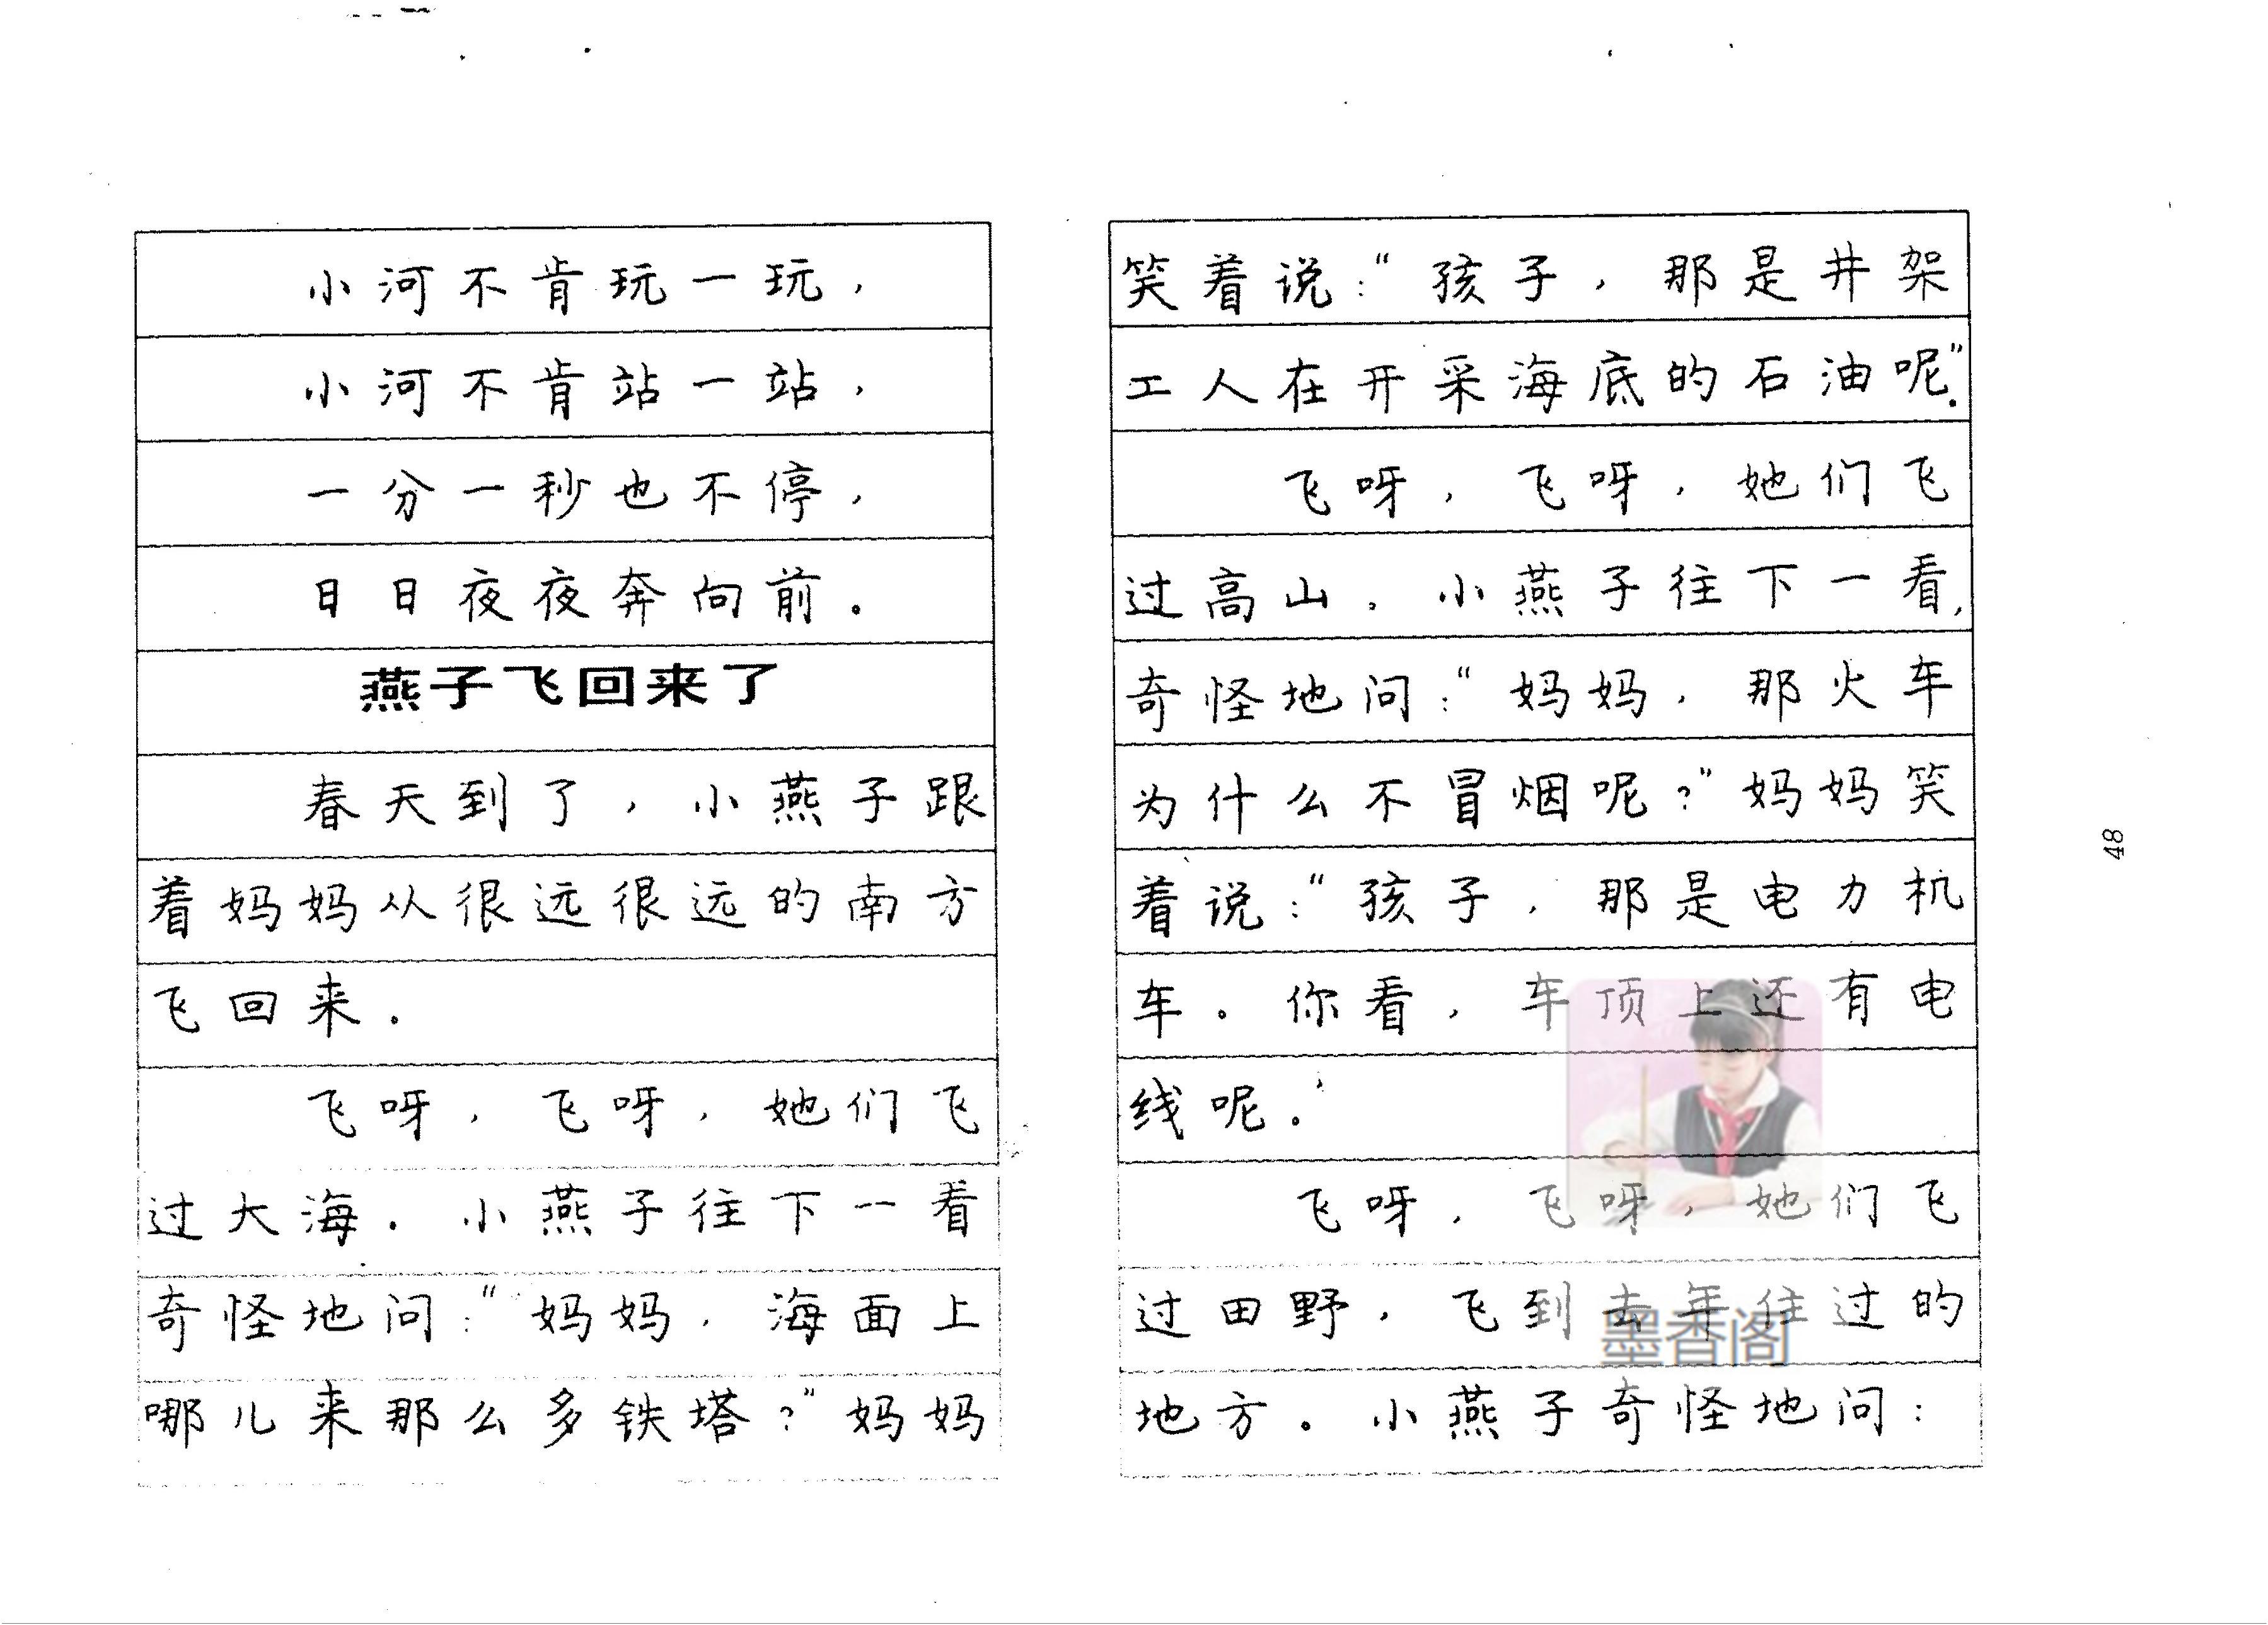 小河不肯玩一玩，
小河不肯站一站，
一分一秒也不停，
日日夜夜奔向前。
燕子飞回来了
春天到了，小燕子跟
着妈妈从很远很远的南方
飞回来.
飞呀，飞呀，她们飞
过大海.小燕子往下一看
奇怪地问:“妈妈，海面上
哪儿来那么多铁塔?”妈妈
笑着说:“孩子，那是井架
工人在开采海底的石油呢”.
飞呀，飞呀，她们飞
过高山。小燕子往下一看，
奇怪地问:“妈妈，那火车
为什么不冒烟呢?”妈妈笑
着说:“孩子，那是电力机
车。你看，车顶上还有电
线呢。’
飞呀，飞呀，她们飞
过田野，飞到去年住过的
地方。小燕子奇怪地问:
墨香阁
48